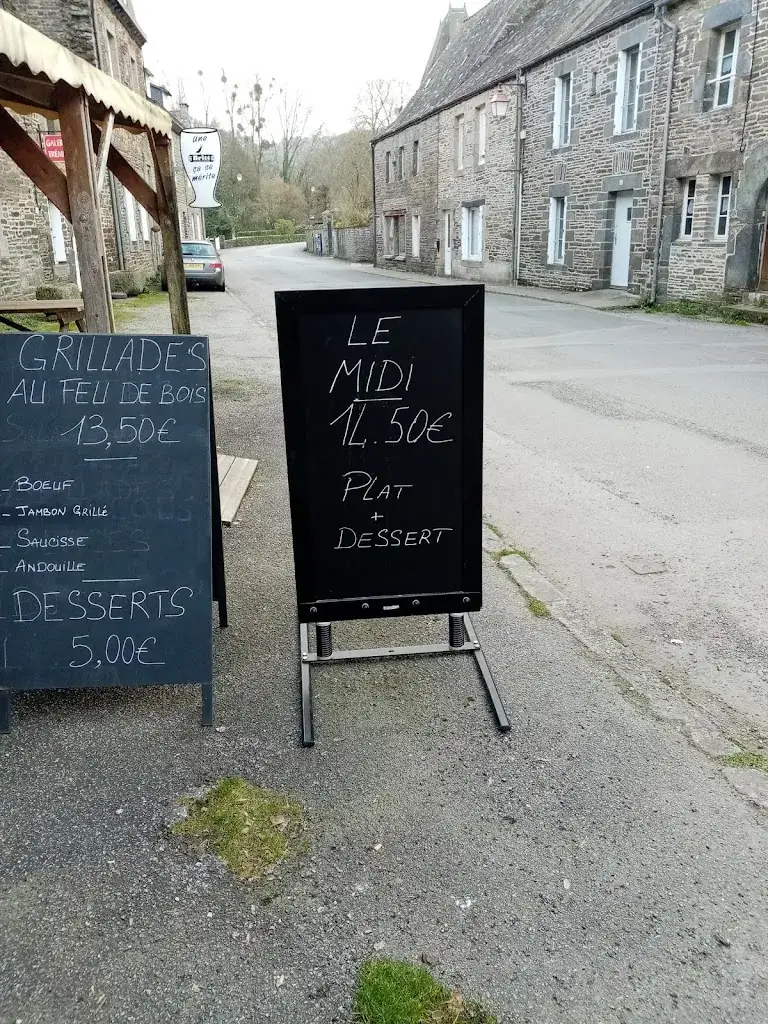 GRILLADES
AU FEU DE BOIS
13,50€
- BOEUF
- JAMBON GRILLÉ
- SAUCISSE
- ANDOUILLE
DESSERTS
5,00€
LE
MIDI
14.50€
PLAT
+
DESSERT
une
ça se
mérite